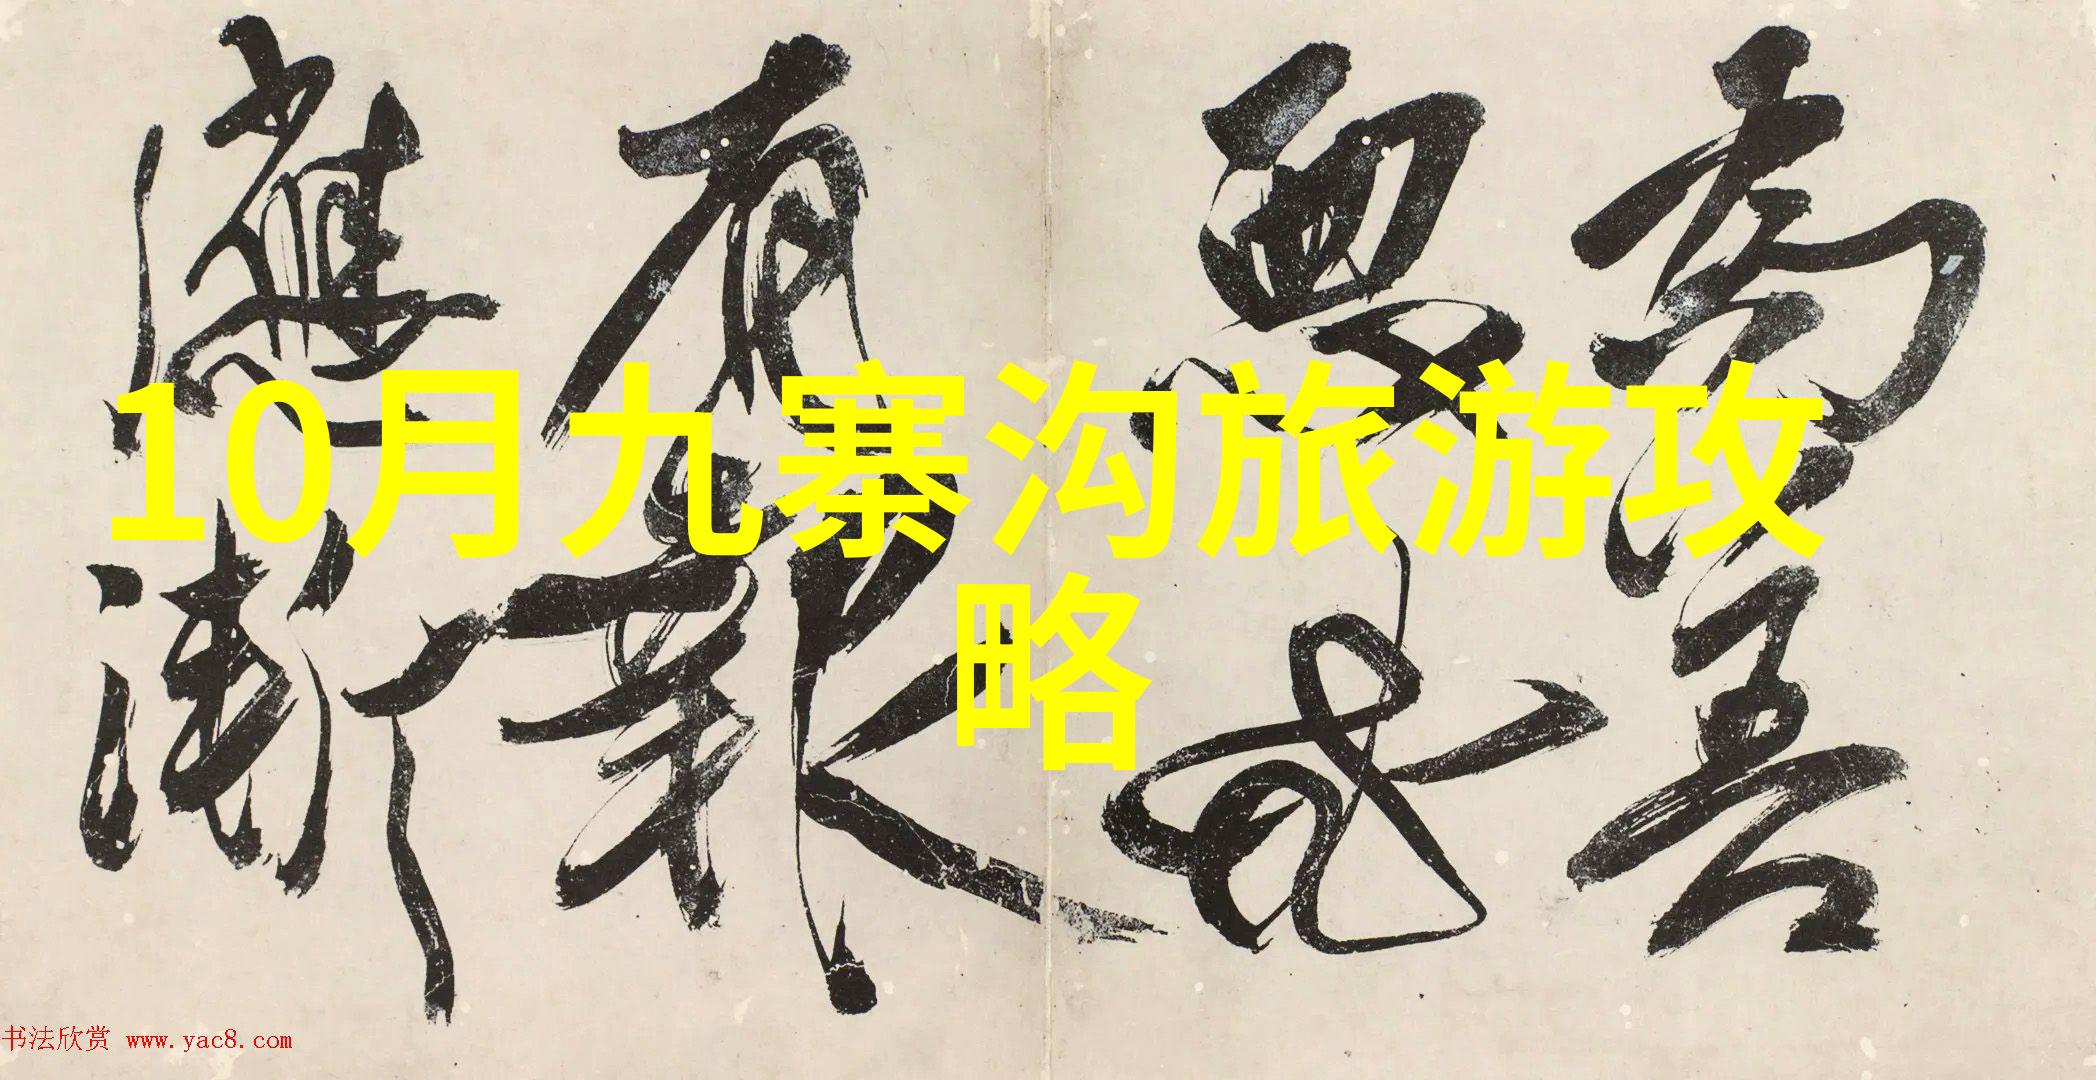 10月九寨沟旅游攻
略
為善
有報
應漸
书法欣赏 www.yac8.com